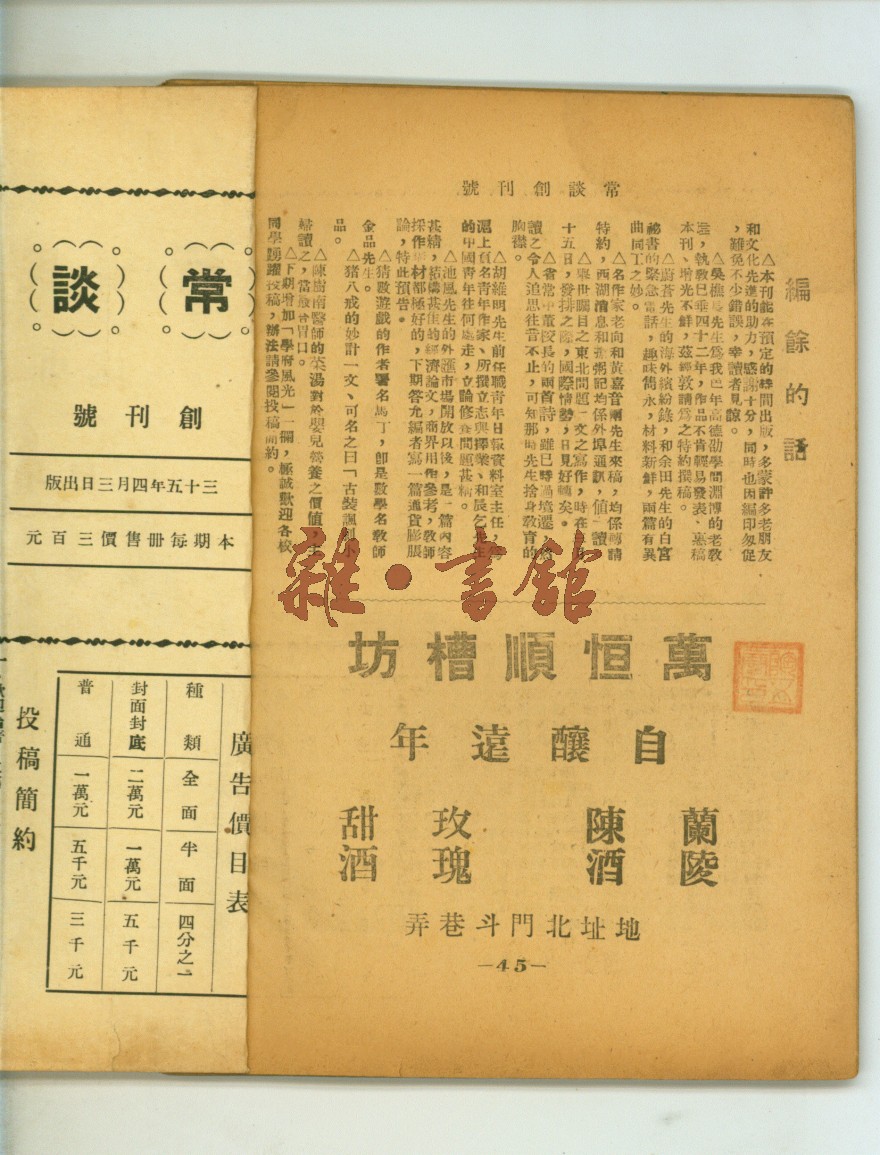 常談創刊號
編餘的話
△本刊能在預定的時間出版，多蒙許多老朋友
和文化先進的助力，感謝十分，同時也因編印匆促
，難免不少錯誤，幸讀者見諒。
△吳樵長先生為我邑年高德劭學問淵博的老教
，執教已垂四十二年，作品不肯輕易發表、惠稿
本刊、增光不鮮，茲經敦請為之特約撰稿。
△蔚蒼先生的海外繽紛錄，和余田先生的白宮
祕書的緊急電話，趣味雋永，材料新鮮，兩篇有異
曲同工之妙。
△名作家老向和黃嘉音兩先生來稿，均係專請
特約，西湖消息和 粥記均係外埠通訊，值 一讀
△舉世矚目之東北問題一文之寫作，時在 月
十五日，發排之際，國際情勢，日見好轉矣。
△省常中董校長的兩首詩，雖已時過境遷，然
讀之令人追思往昔不止，可知那時先生捨身教育的
胸襟。
△胡維明先生前任職青年日報資料室主任，為
滬上負名青年作家、所撰立志與擇業、和辰乞先生
的中國青年往何處走，立論修養問題甚精。
△池風先生的外滙市場開放以後，是一篇內容
甚精，結構甚佳的經濟論文，商界用作參考，教師
採作教材都極好的，下期答允編者寫一篇通貨膨脹
論，特此預告。
△猜數遊戲的作者署名馬丁，即是數學名教師
金品先生。
△猪八戒的妙計一文、可名之曰「古裝諷刺小
品。
△陳樹南醫師的菜湯對於嬰兒營養之價值，主
婦讀之，當 合胃口。
△下期增加「學府風光」一欄，極誠歡迎各校
同學踴躍投稿，辦法請參閱投稿簡約。
萬恒順槽坊
自釀遠年
蘭陵
陳酒
玫瑰
甜酒
地址北門斗巷弄
—45—
常談
創刊號
三十五年四月三日出版
本期每册售價三百元
廣告價目表
種類 全面 半面 四分之一
封面封底 二萬元 一萬元 五千元
普通 一萬元 五千元 三千元
投稿簡約
雜·書館